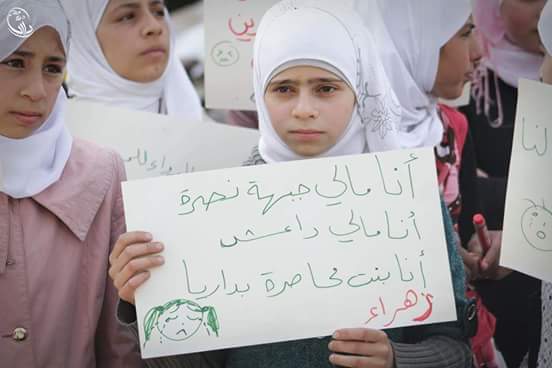 أنا مالي جبهة نصرة
أنا مالي داعش
أنا بنت محاصرة بداريا
زهراء
لنا